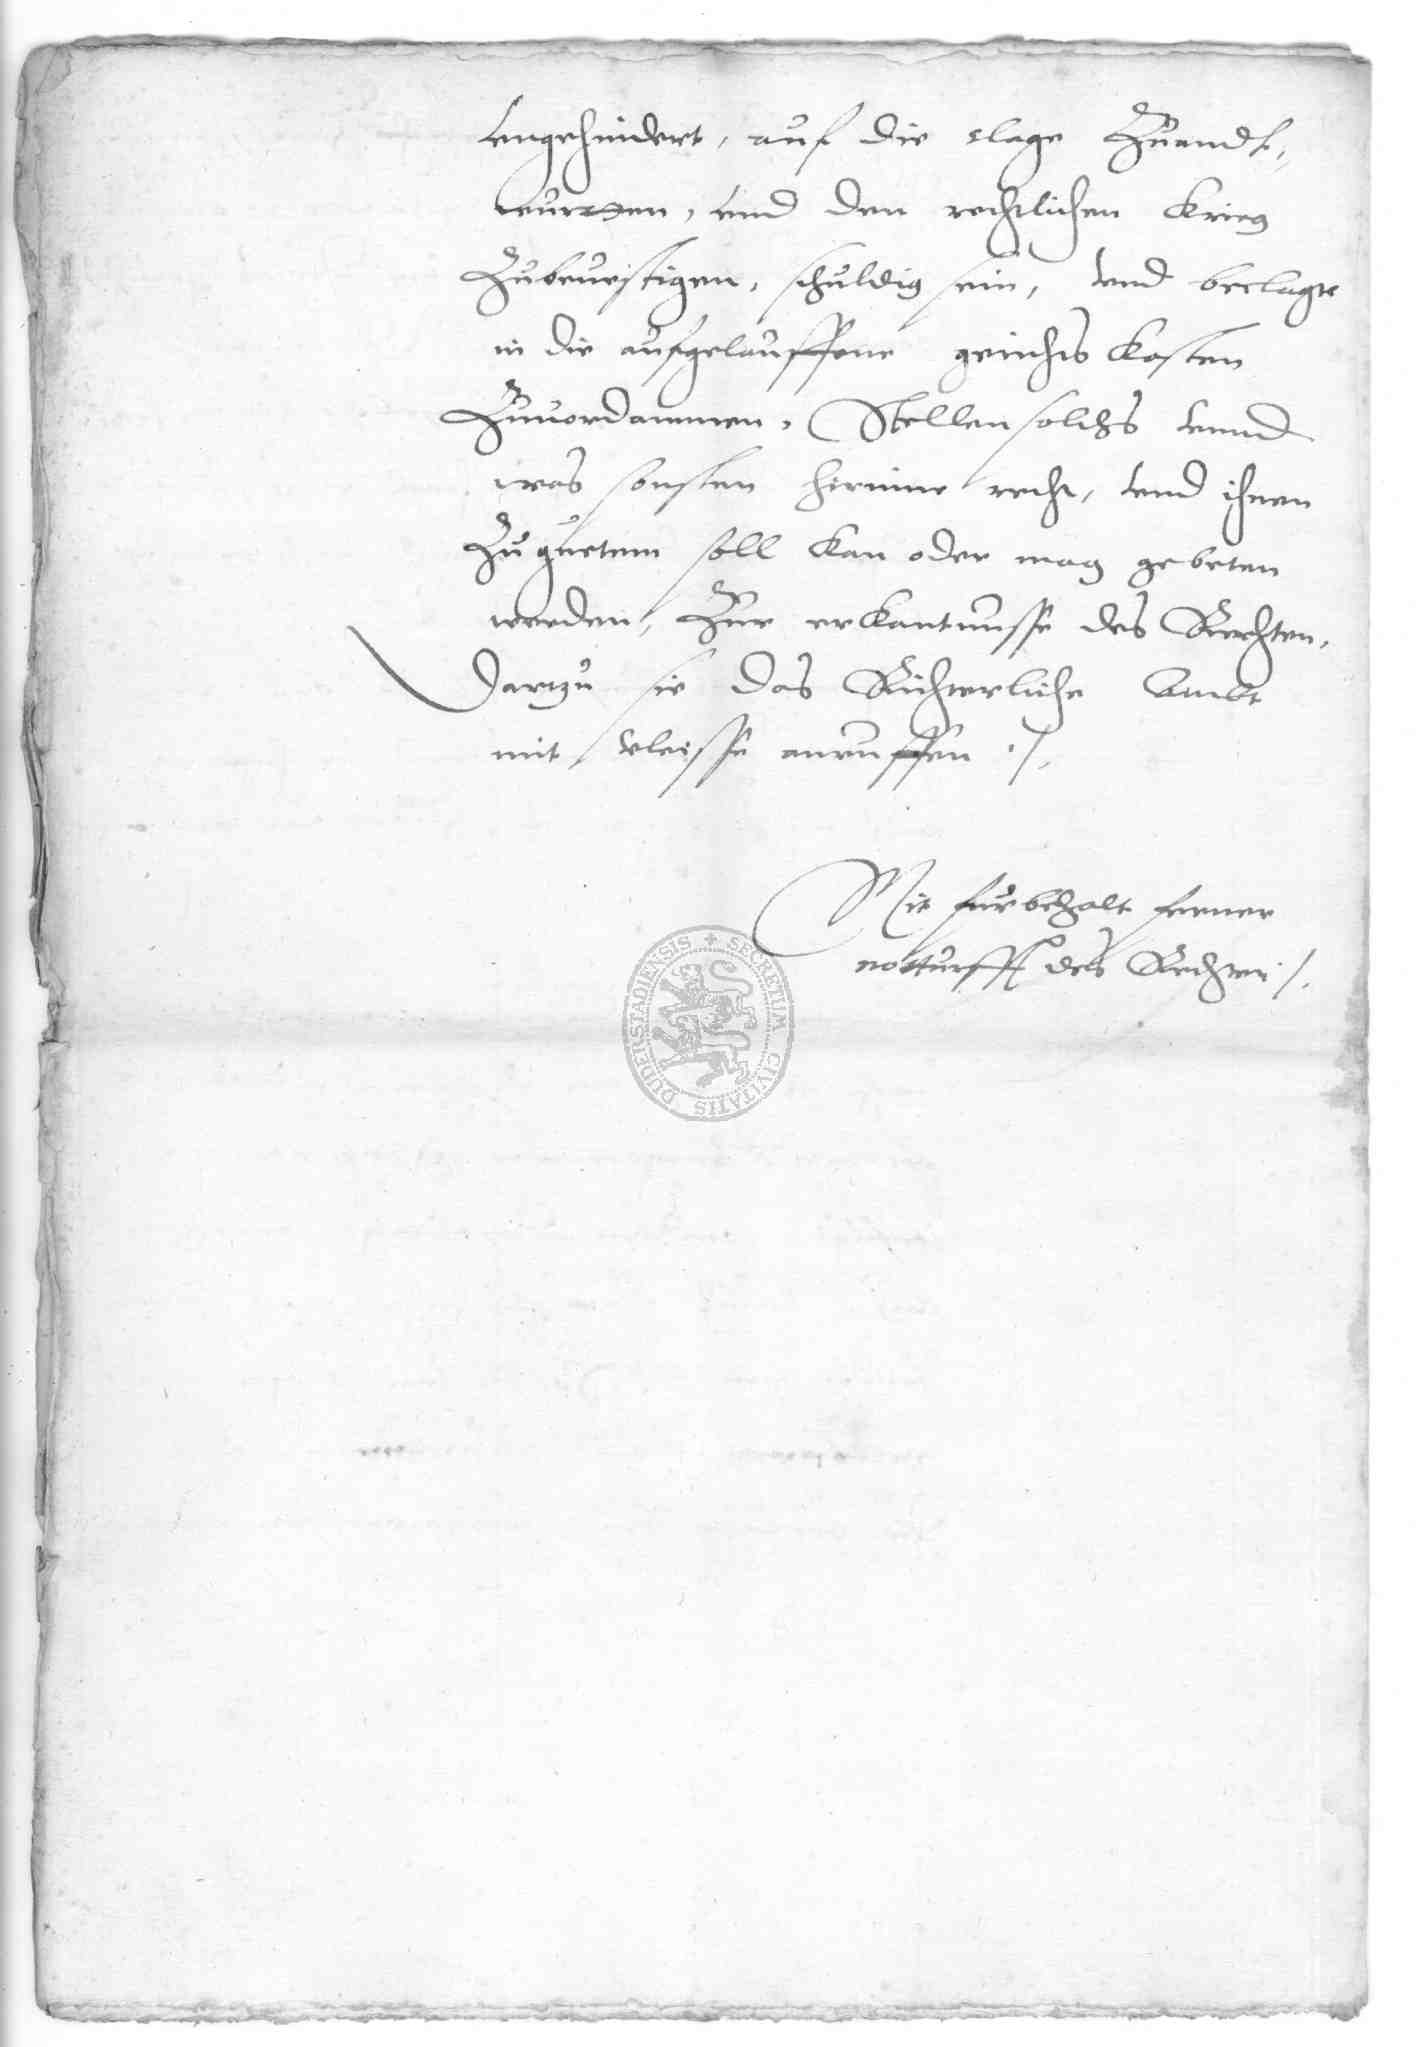 vngehindert, auf die clage Zuandt,,
wurtten, vnd den rechtlichen Krieg
Zubeuestigen, schuldig sein, vnd beclagte
in die aufgelauffene gerichts Kosten
Zuuordammen, Stellen solchs vnnd
was sonsten hirinne recht, vnd ihnen
Zu guetem soll kan oder mag gebeten
werden, Zur erkantnusse des Rechten,
Dartzu sie das Richterliche Ambt
mit vleisse anruffen ./.
Mit furbehalt ferner
notturfft des Rechten /.
SECRETUM CIVITATIS DUDERSTADIENSIS